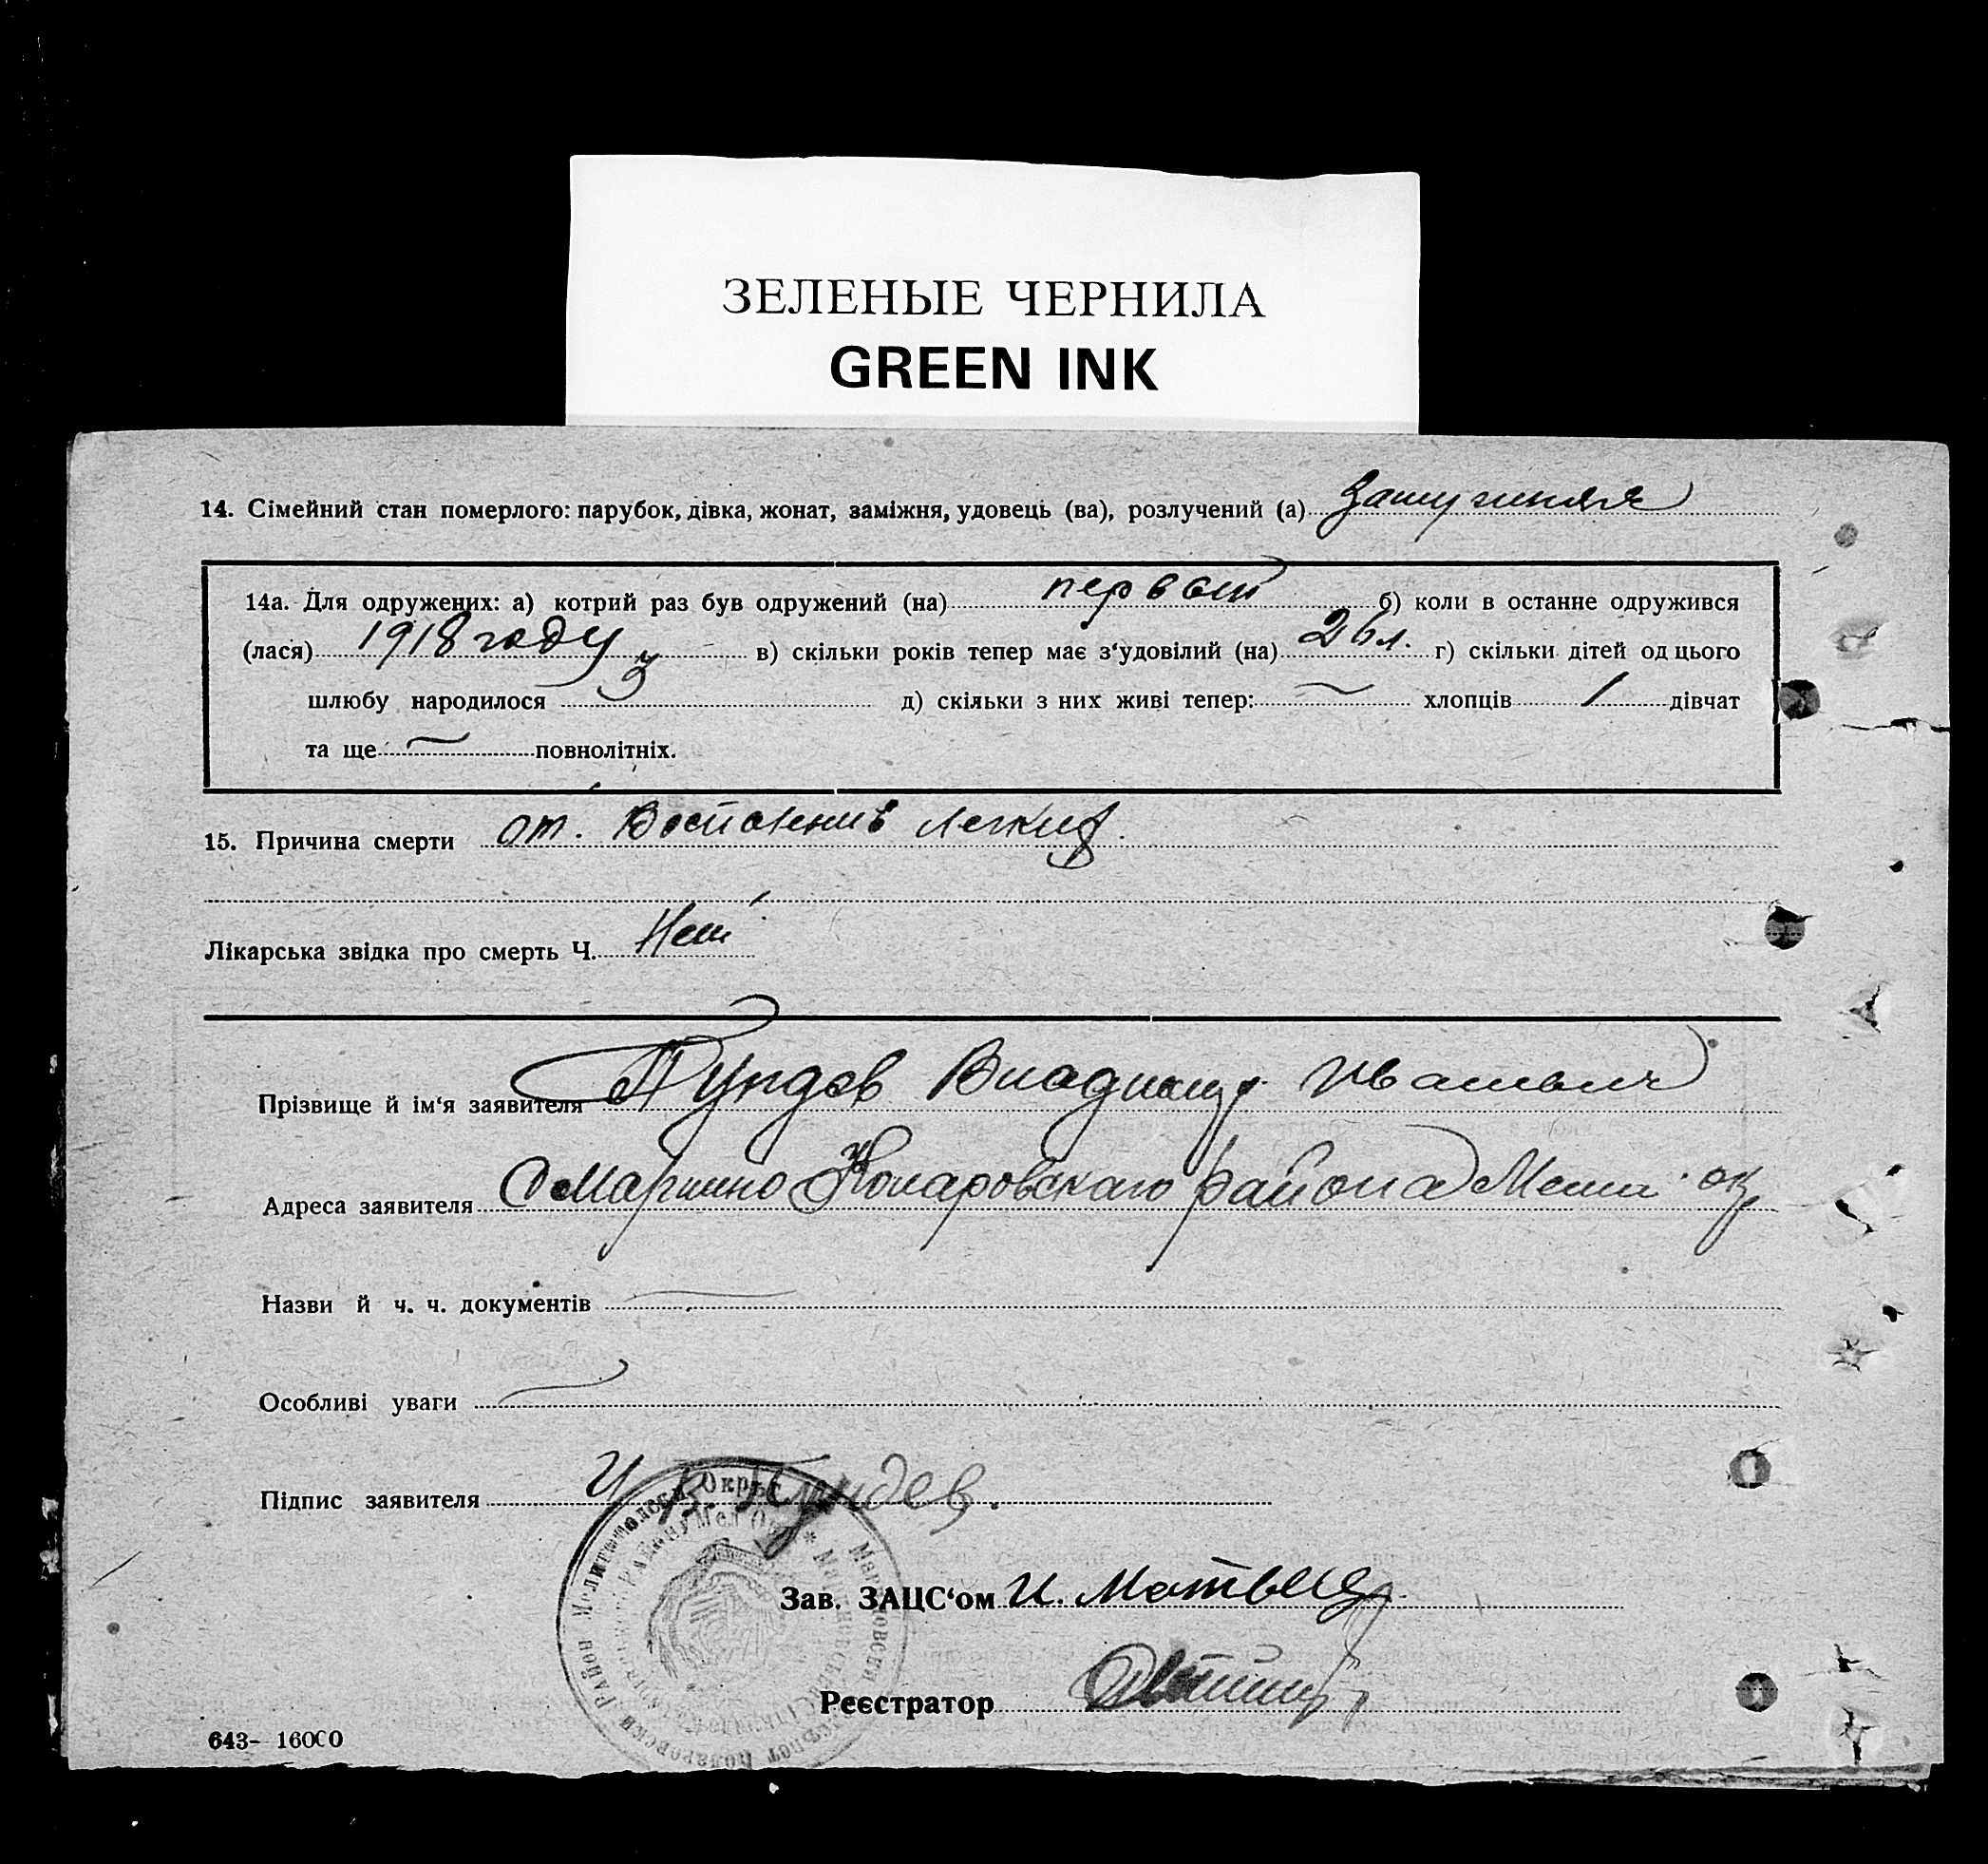 ЗЕЛЕНЫЕ ЧЕРНИЛА
GREEN INK
14. Сімейний стан померлого: парубок, дівка, жонат, заміжня, удовець (ва), розлучений (а) Замужняя
14а. Для одружених: а) котрий раз був одружений (на) первый б) коли в останнє одружився
(лася) 1918 году в) скільки років тепер має з‘удовілий (на) 26 л. г) скільки дітей од цього
шлюбу народилося 3 д) скільки з них живі тепер: — хлопців 1 дівчат
та ще — повнолітніх.
15. Причина смерти от. Восполения легких.
Лікарська звідка про смерть Ч. Нет
Прізвище й ім‘я заявителя Владимир Иванович
Адреса заявителя Маршино Комаровскаго района Мелит. окр
Назви й ч. ч. документів —
Особливі уваги —
Підпис заявителя
Зав. ЗАЦС‘ом И.
Реєстратор
643- 16000